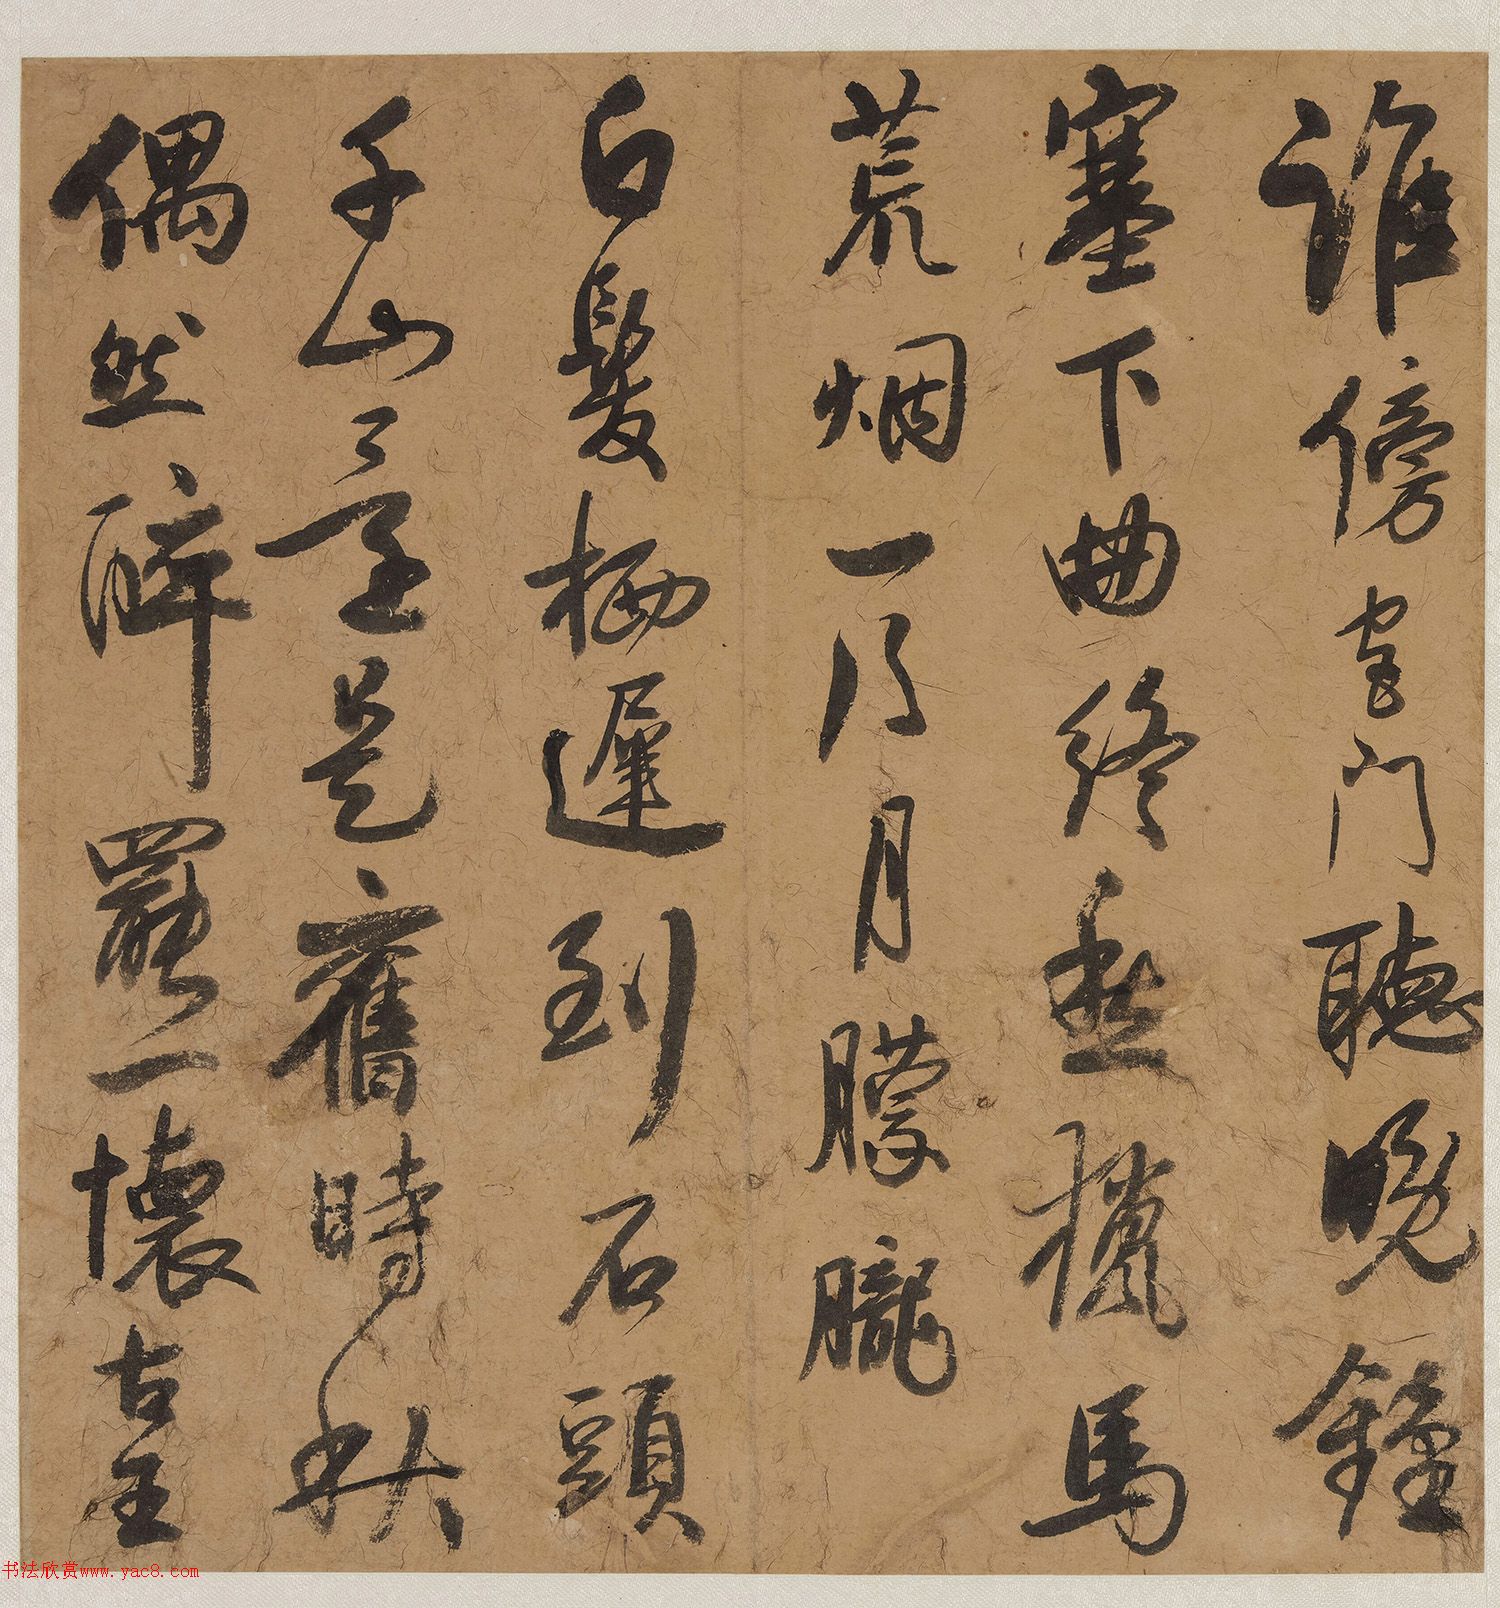 誰傍宮門聽曉鐘
塞下曲終愁獵馬
荒烟一片月朦朧
白髮栖遲到石頭
千山是舊時秋
偶然醉罷一懷古
书法欣赏www.yac8.com